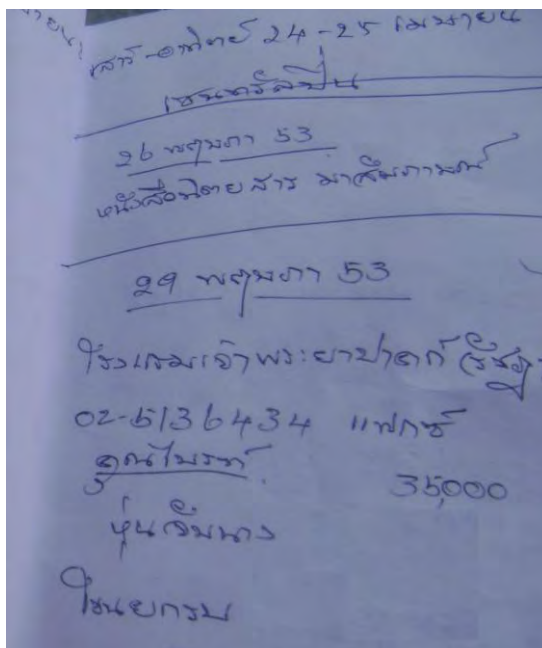 เสาร์-อาทิตย์ 24-25 เมษายน
เซนทรัลปิ่น
26 พฤษภา 53
หนังสือนิตยสาร มาสัมภาษณ์
29 พฤษภา 53
โรงแรมเจ้าพระยาปาร์ค รัชดา
02-5136434 แฟกซ์
คุณไพรฑ์ 35,000
หุ่นจับนาง
โขนยกรบ